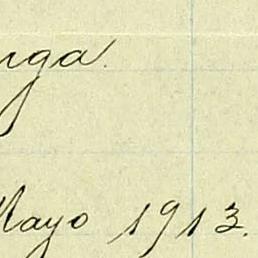 nga.
Mayo 1913.